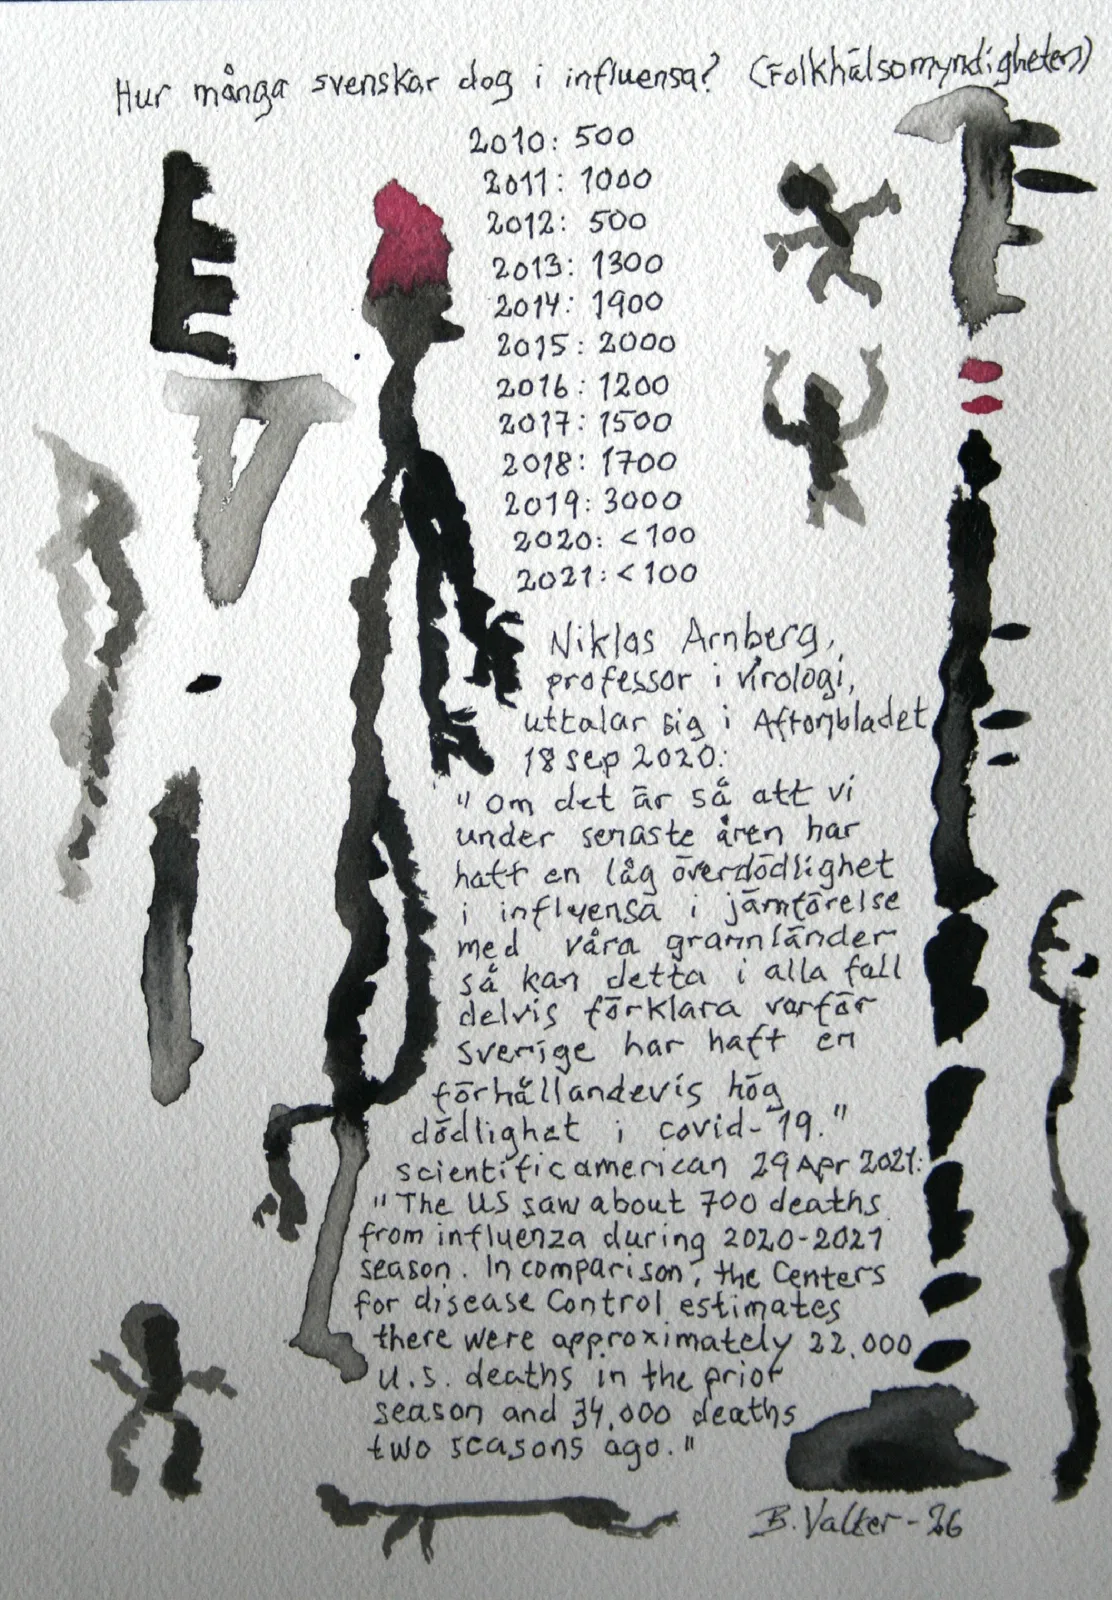 Hur många svenskar dog i influensa? (Folkhälsomyndigheten)
2010: 500
2011: 1000
2012: 500
2013: 1300
2014: 1900
2015: 2000
2016: 1200
2017: 1500
2018: 1700
2019: 3000
2020: <100
2021: <100
Niklas Arnberg,
professor i virologi,
uttalar sig i Aftonbladet
18 sep 2020:
"Om det är så att vi
under senaste åren har
haft en låg överdödlighet
i influensa i jämförelse
med våra grannländer
så kan detta i alla fall
delvis förklara varför
Sverige har haft en
förhållandevis hög
dödlighet i covid-19."
scientificamerican 29 Apr 2021:
"The US saw about 700 deaths
from influenza during 2020-2021
season. In comparison, the Centers
for disease Control estimates
there were approximately 22,000
U.S. deaths in the prior
season and 34,000 deaths
two seasons ago."
B. Valter -26